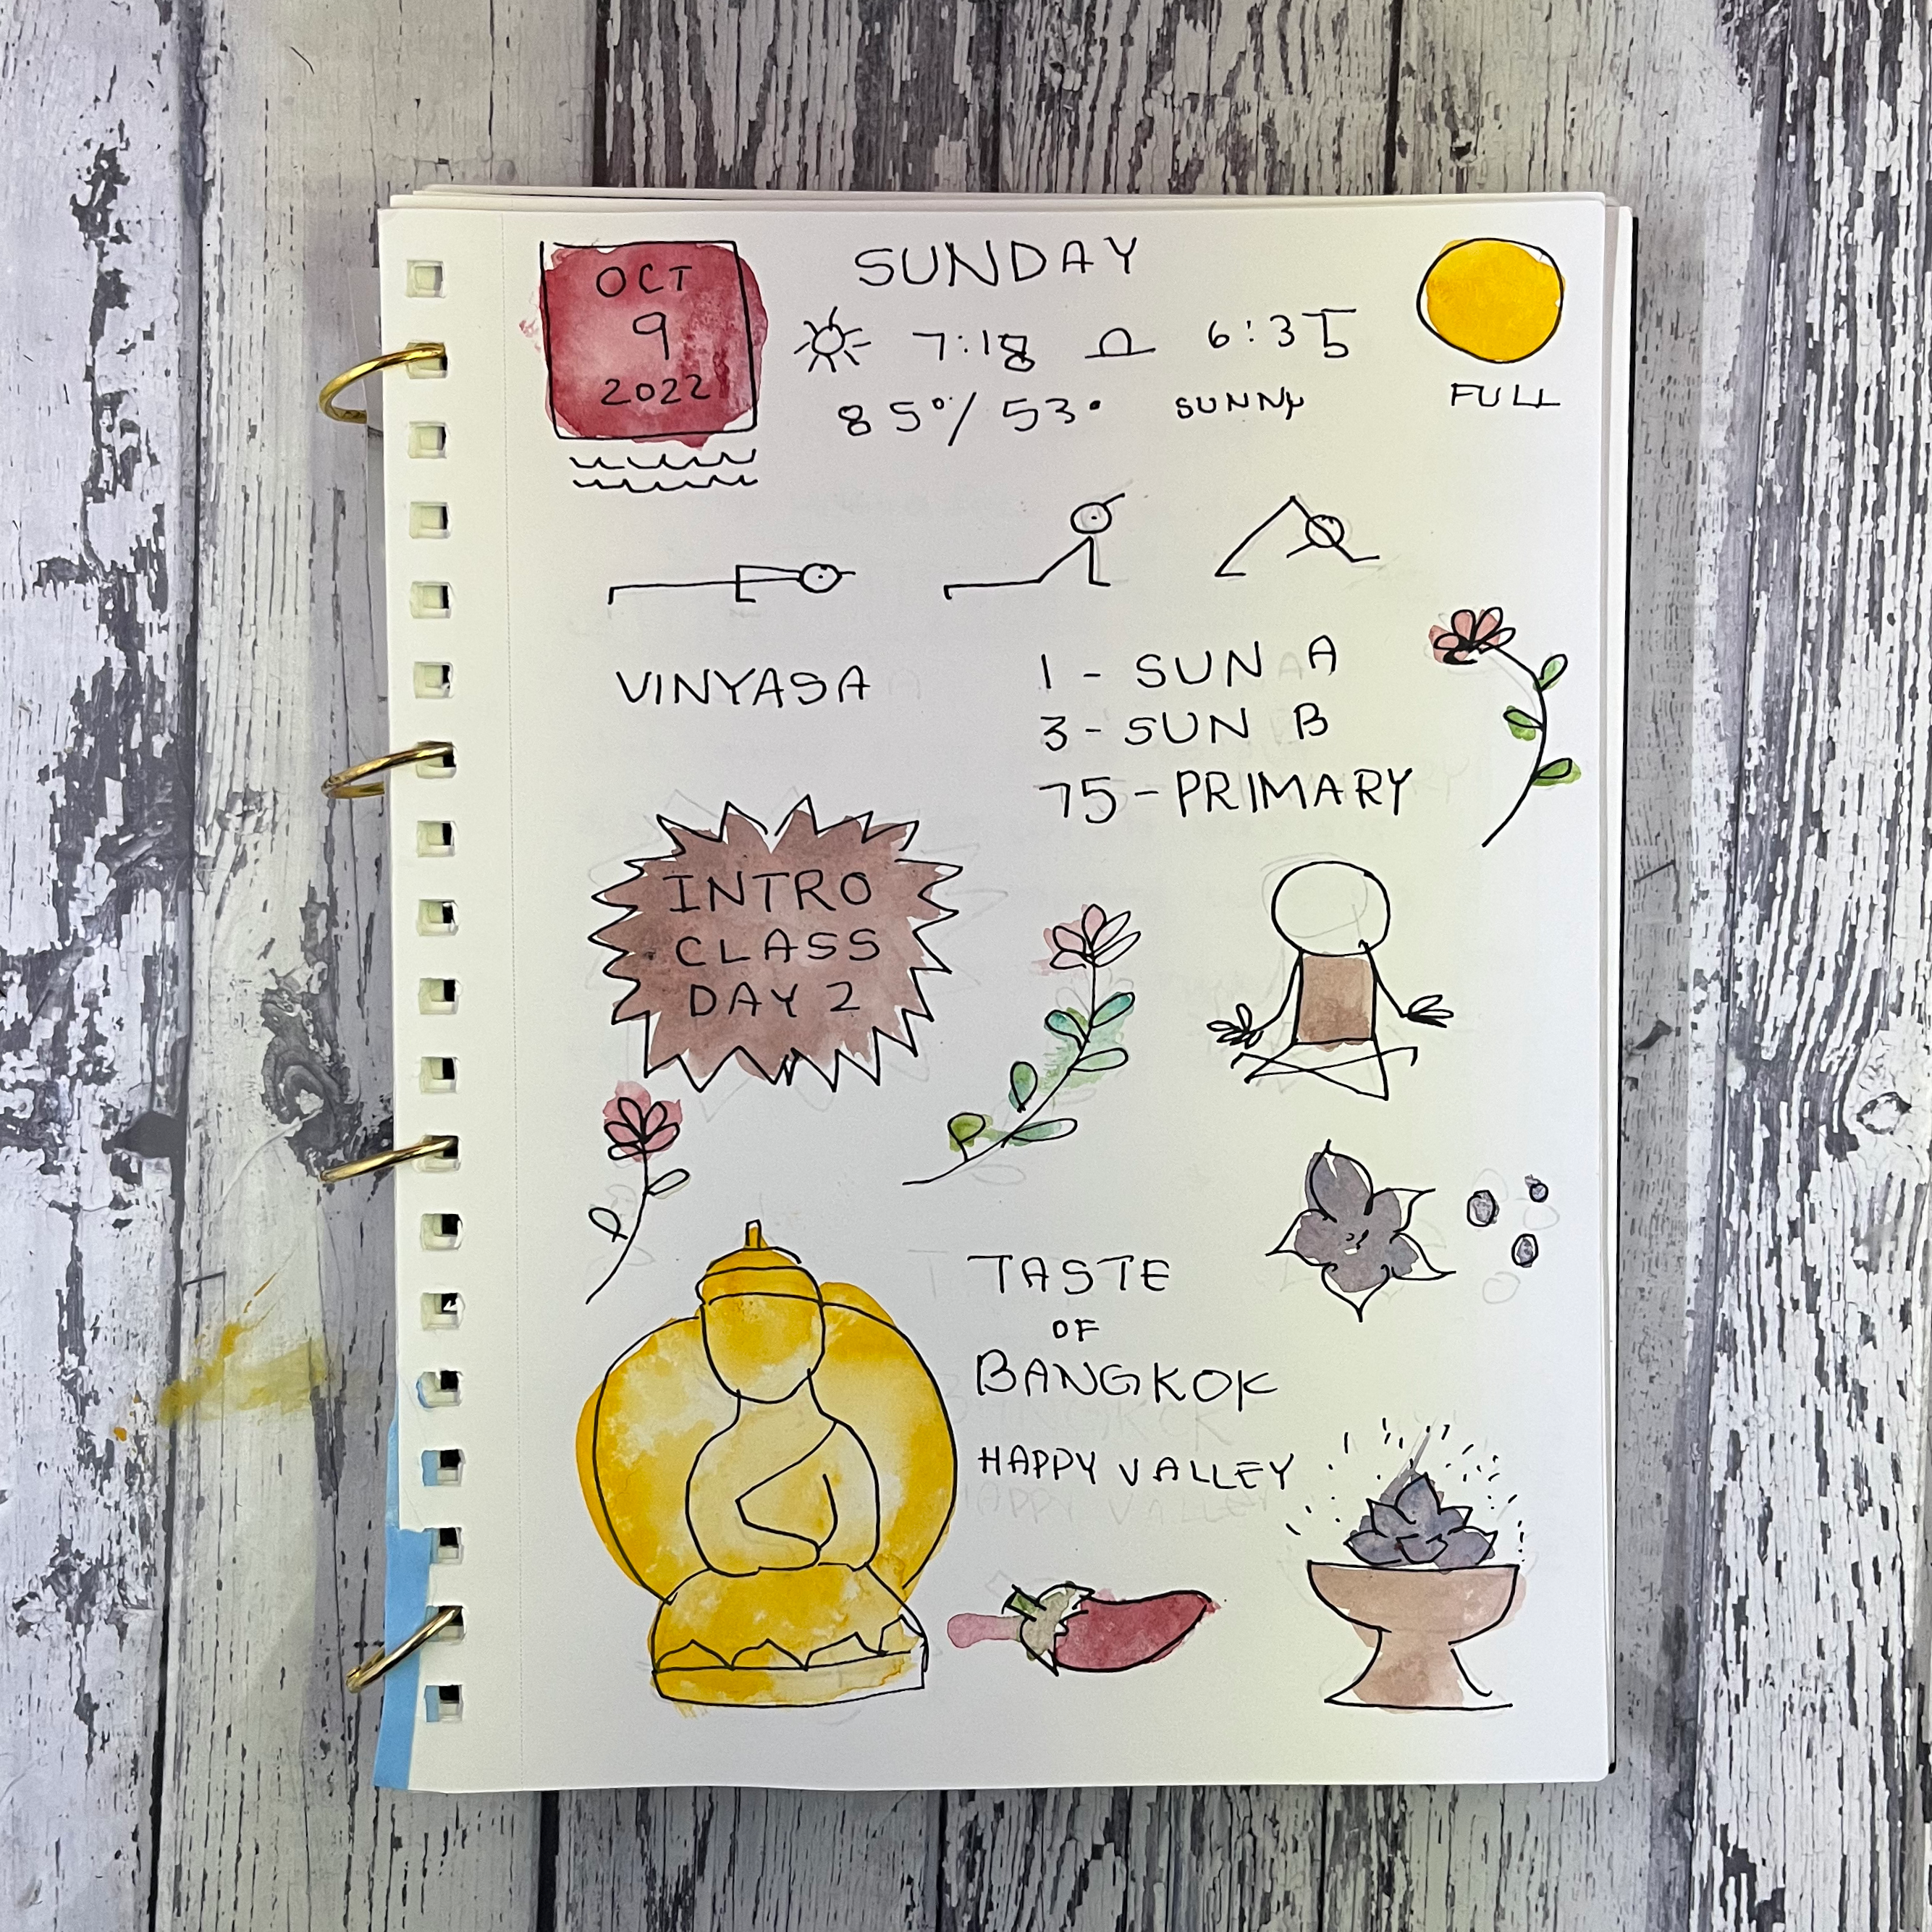 OCT
9
2022
SUNDAY
7:18 6:35
85°/53° SUNNY
FULL
VINYASA
1 - SUN A
3 - SUN B
75 - PRIMARY
INTRO
CLASS
DAY 2
TASTE
OF
BANGKOK
HAPPY VALLEY